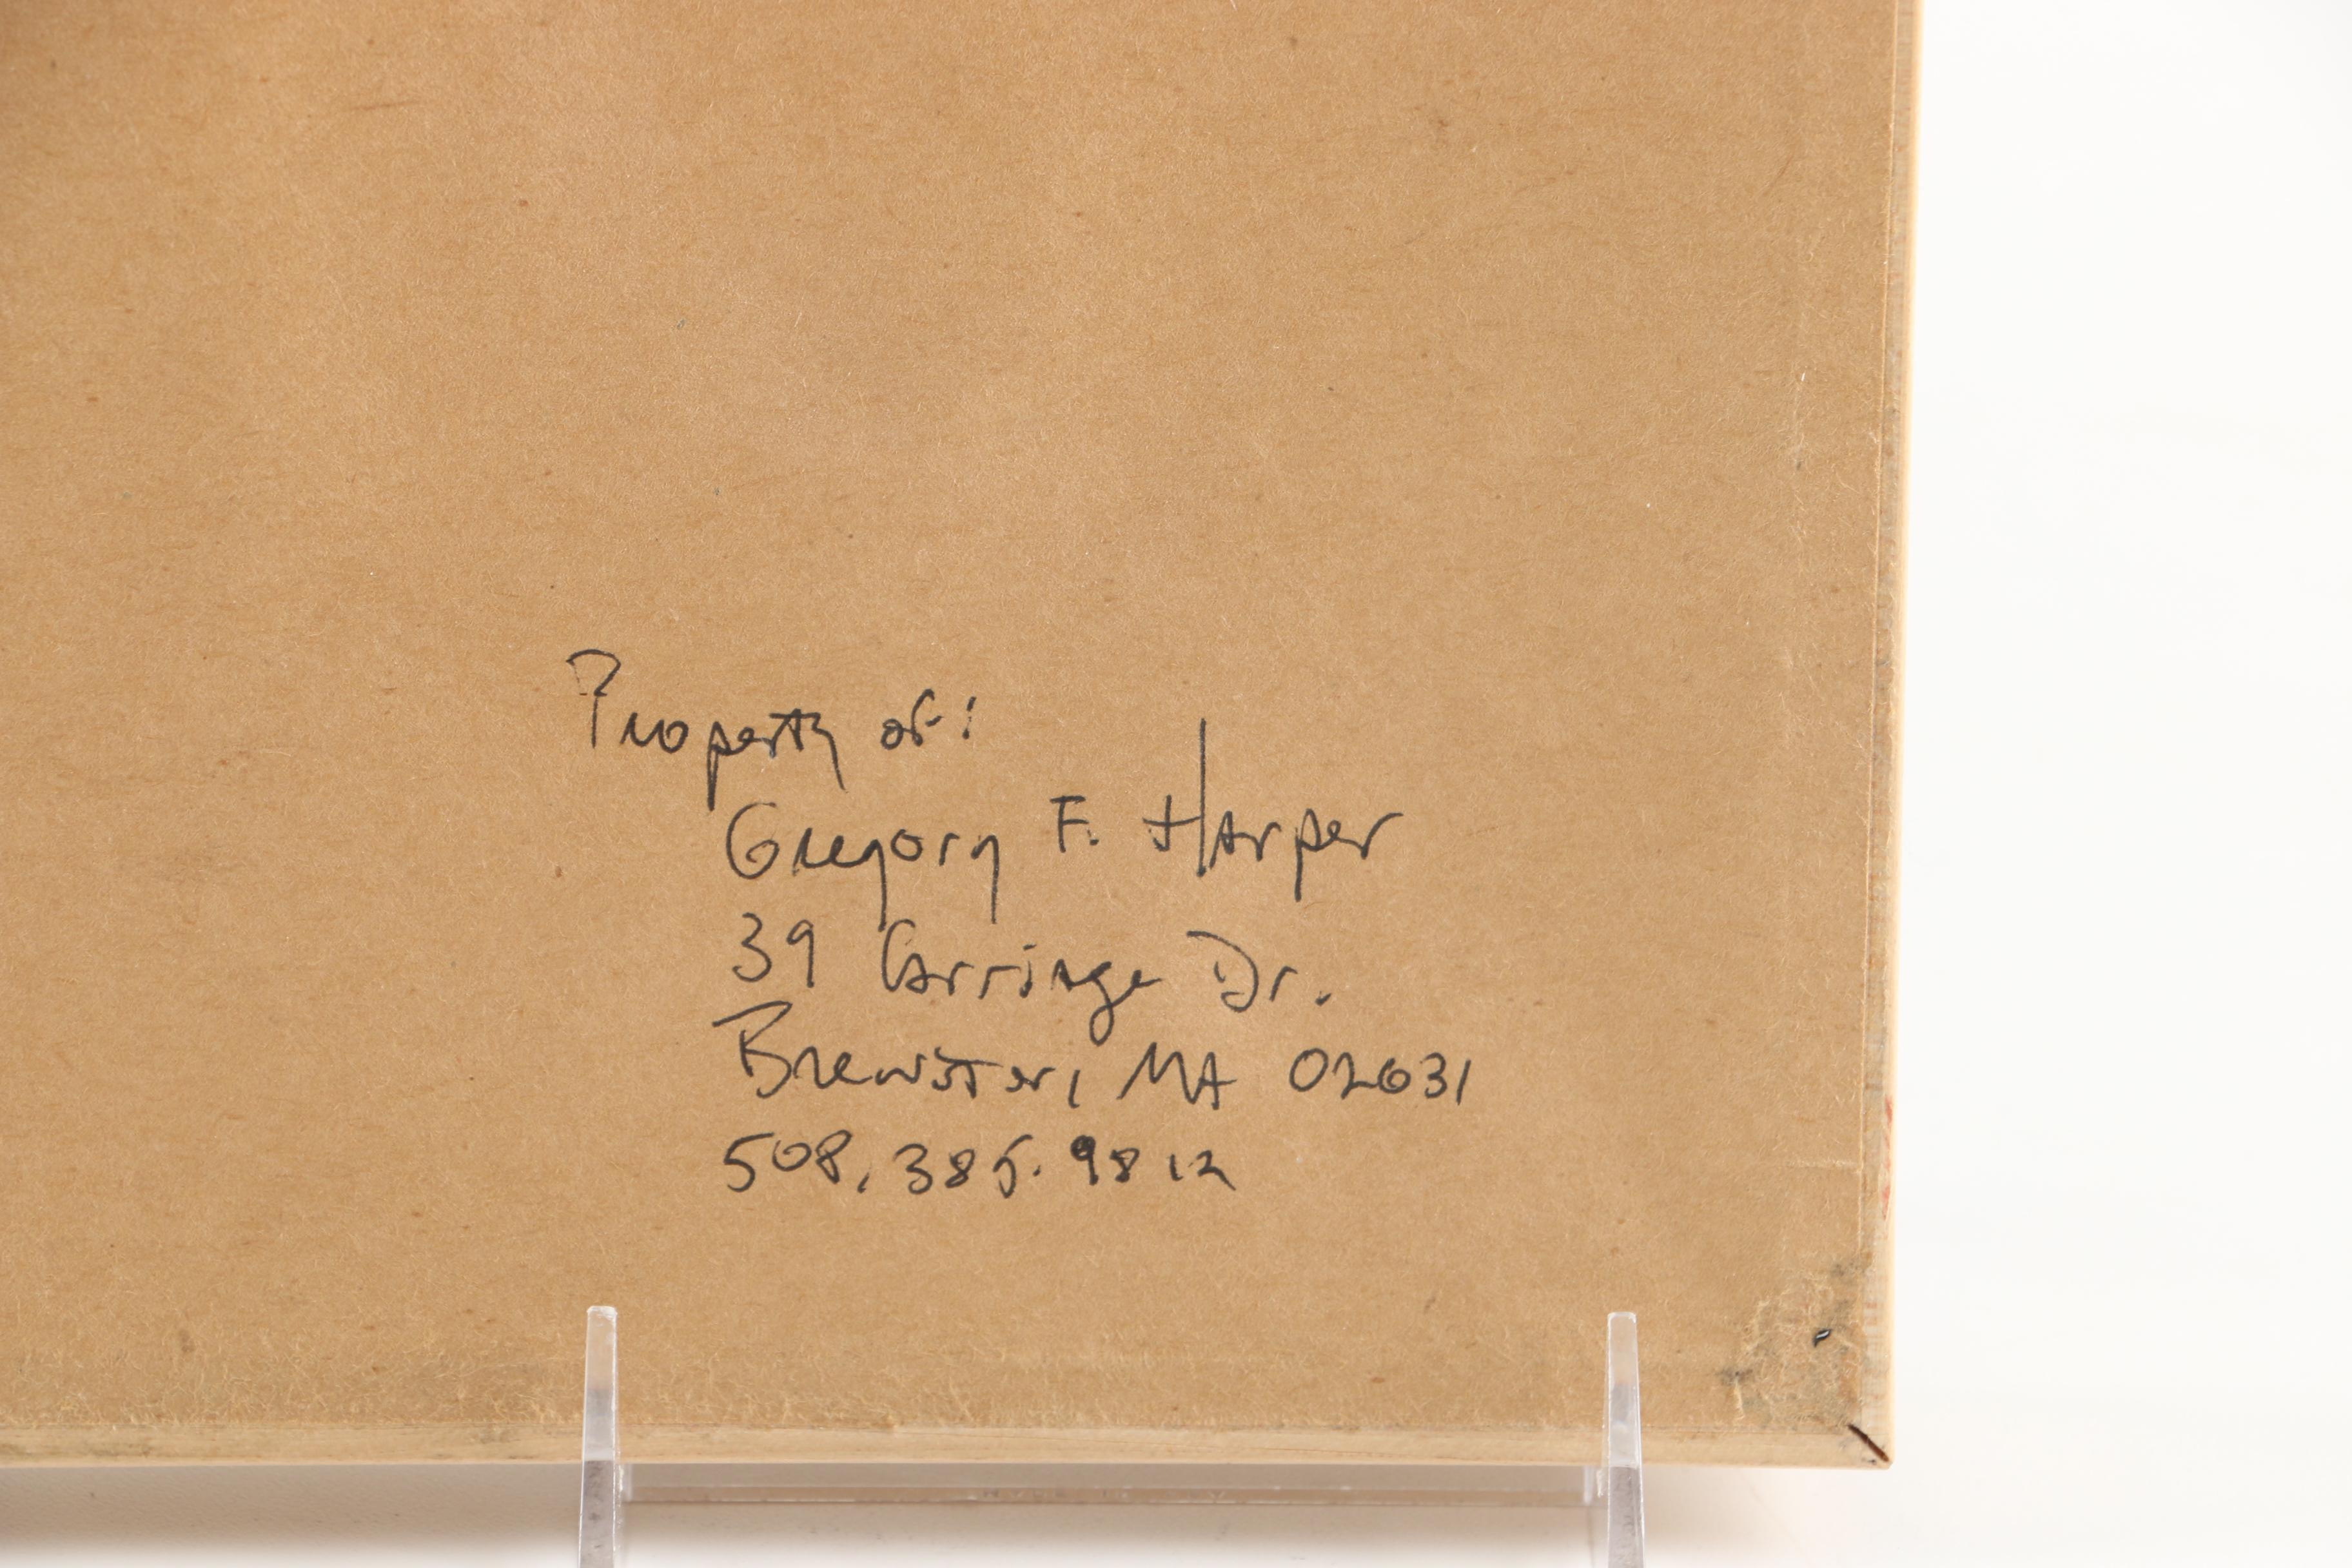 Property of:
Gregory F. Harper
39 Carriage Dr.
Brewster, MA 02631
508.385.9812